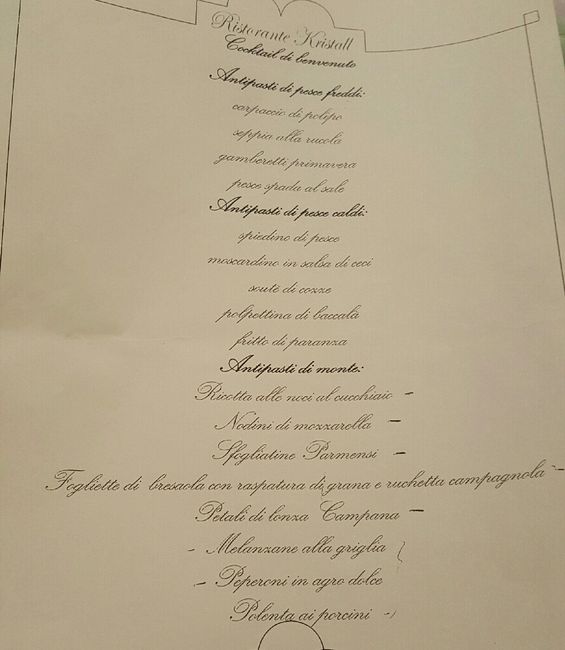 Ristorante Kristall
Cocktail di benvenuto
Antipasti di pesce freddi:
carpaccio di polipo
seppia alla rucola
gamberetti primavera
pesce spada al sale
Antipasti di pesce caldi:
spiedino di pesce
moscardino in salsa di ceci
soutè di cozze
polpettina di baccalà
fritto di paranza
Antipasti di monte:
Ricotta alle noci al cucchiaio -
Nodini di mozzarella -
Sfogliatine Parmensi -
Fogliette di bresaola con raspatura di grana e ruchetta campagnola -
Petali di lonza Campana -
- Melanzane alla griglia
- Peperoni in agro dolce
Polenta ai porcini -